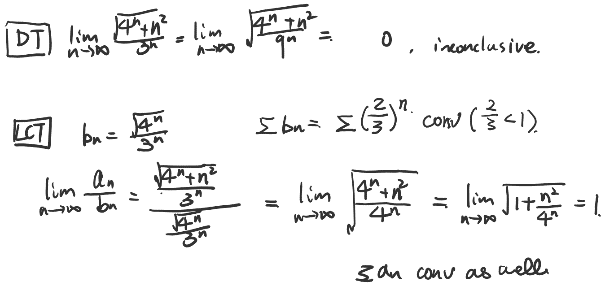 DT lim_{n→∞} √(4^n+n^2)/3^n = lim_{n→∞} √((4^n+n^2)/9^n) = 0, inconclusive.
LCT b_n = √(4^n)/3^n Σ b_n = Σ (2/3)^n conv (2/3 < 1)
lim_{n→∞} a_n/b_n = (√(4^n+n^2)/3^n)/(√(4^n)/3^n) = lim_{n→∞} √((4^n+n^2)/4^n) = lim_{n→∞} √(1+n^2/4^n) = 1.
Σ a_n conv as well.